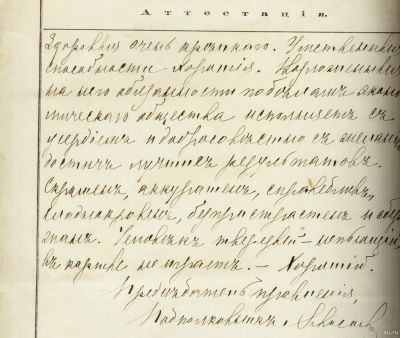 Аттестація.
Здоровья очень прочнаго. Умственныя
способности хорошія. Возложенныя
на него обязанности по боламъ эконо
мическаго общества исполняетъ съ
усердіемъ и добросовѣстно съ желан
достичь лучшихъ результатовъ.
Скроменъ, аккуратенъ, справедливъ,
хладнокровенъ, безпристрастенъ и
знамъ. Человѣкъ трезвый - непьющій,
въ карты не играетъ. - Хорошій.
Предсѣдатель правленія,
Подполковникъ
au.ru